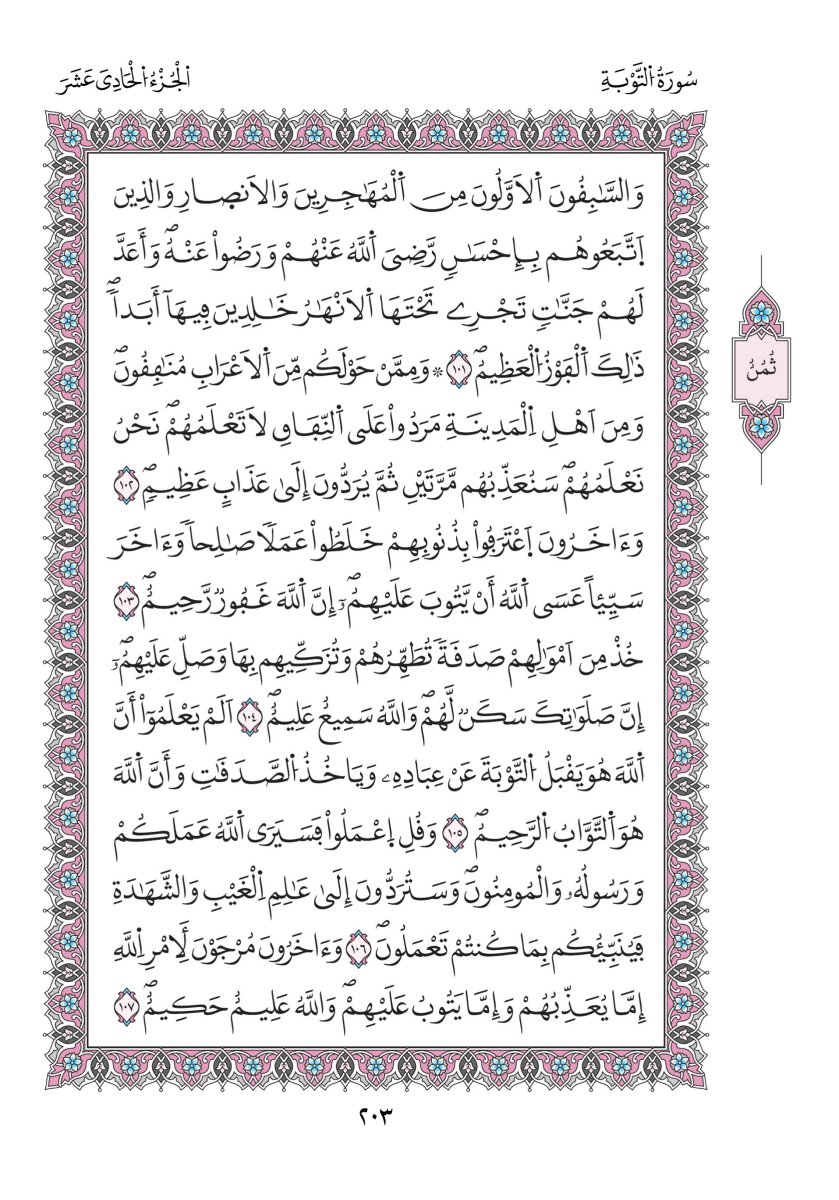 سُورَةُ اُ۬لتَّوْبَةِ
اَ۬لْجُزْءُ اُ۬لْحَادِىَ عَشَرَ
وَالسَّٰبِقُونَ اَ۬لَاوَّلُونَ مِنَ اَ۬لْمُهَٰجِرِينَ وَالَانصٖارِ وَالذِينَ
اَ۪تَّبَعُوهُم بِإِحْسَٰنٖ رَّضِىَ اَ۬للَّهُ عَنْهُمْ وَرَضُواْ عَنْهُۖ وَأَعَدَّ
لَهُمْ جَنَّٰتٖ تَجْرِے تَحْتَهَا اَ۬لَانْهَٰرُ خَٰلِدِينَ فِيهَآ أَبَداٗۖ
ذَٰلِكَ اَ۬لْفَوْزُ اُ۬لْعَظِيمُۖ ١٠١ ۞ وَمِمَّنْ حَوْلَكُم مِّنَ اَ۬لَاعْرَابِ مُنَٰفِقُونَۖ
وَمِنَ اَهْلِ اِ۬لْمَدِينَةِ مَرَدُواْ عَلَى اَ۬لنِّفَاقِ لَا تَعْلَمُهُمْۖ نَحْنُ
نَعْلَمُهُمْۖ سَنُعَذِّبُهُم مَّرَّتَيْنِ ثُمَّ يُرَدُّونَ إِلَىٰ عَذَابٍ عَظِيمٖۖ ١٠٢
وَءَاخَرُونَ اَ۪عْتَرَفُواْ بِذُنُوبِهِمْ خَلَطُواْ عَمَلاٗ صَٰلِحاٗ وَءَاخَرَ
سَيِّئاً عَسَى اَ۬للَّهُ أَنْ يَّتُوبَ عَلَيْهِمُۥٓۖ إِنَّ اَ۬للَّهَ غَفُورٞ رَّحِيمٌۖ ١٠٣
خُذْ مِنَ اَمْوَٰلِهِمْ صَدَقَةٗ تُطَهِّرُهُمْ وَتُزَكِّيهِم بِهَا وَصَلِّ عَلَيْهِمُۥٓۖ
إِنَّ صَلَوَٰتِكَ سَكَنٞ لَّهُمْۖ وَاللَّهُ سَمِيعٌ عَلِيمٌۖ ١٠٤ اَلَمْ يَعْلَمُوٓاْ أَنَّ
اَ۬للَّهَ هُوَ يَقْبَلُ اُ۬لتَّوْبَةَ عَنْ عِبَادِهِۦ وَيَاخُذُ اُ۬لصَّدَقَٰتِ وَأَنَّ اَ۬للَّهَ
هُوَ اَ۬لتَّوَّابُ اُ۬لرَّحِيمُۖ ١٠٥ وَقُلِ اِ۪عْمَلُواْ فَسَيَرَى اَ۬للَّهُ عَمَلَكُمْ
وَرَسُولُهُۥ وَالْمُومِنُونَۖ وَسَتُرَدُّونَ إِلَىٰ عَٰلِمِ اِ۬لْغَيْبِ وَالشَّهَٰدَةِ
فَيُنَبِّئُكُم بِمَا كُنتُمْ تَعْمَلُونَۖ ١٠٦ وَءَاخَرُونَ مُرْجَوْنَ لَأِمْرِ اِ۬للَّهِ
إِمَّا يُعَذِّبُهُمْ وَإِمَّا يَتُوبُ عَلَيْهِمْۖ وَاللَّهُ عَلِيمٌ حَكِيمٌۖ ١٠٧
ثُمُنُ
٢٠٣